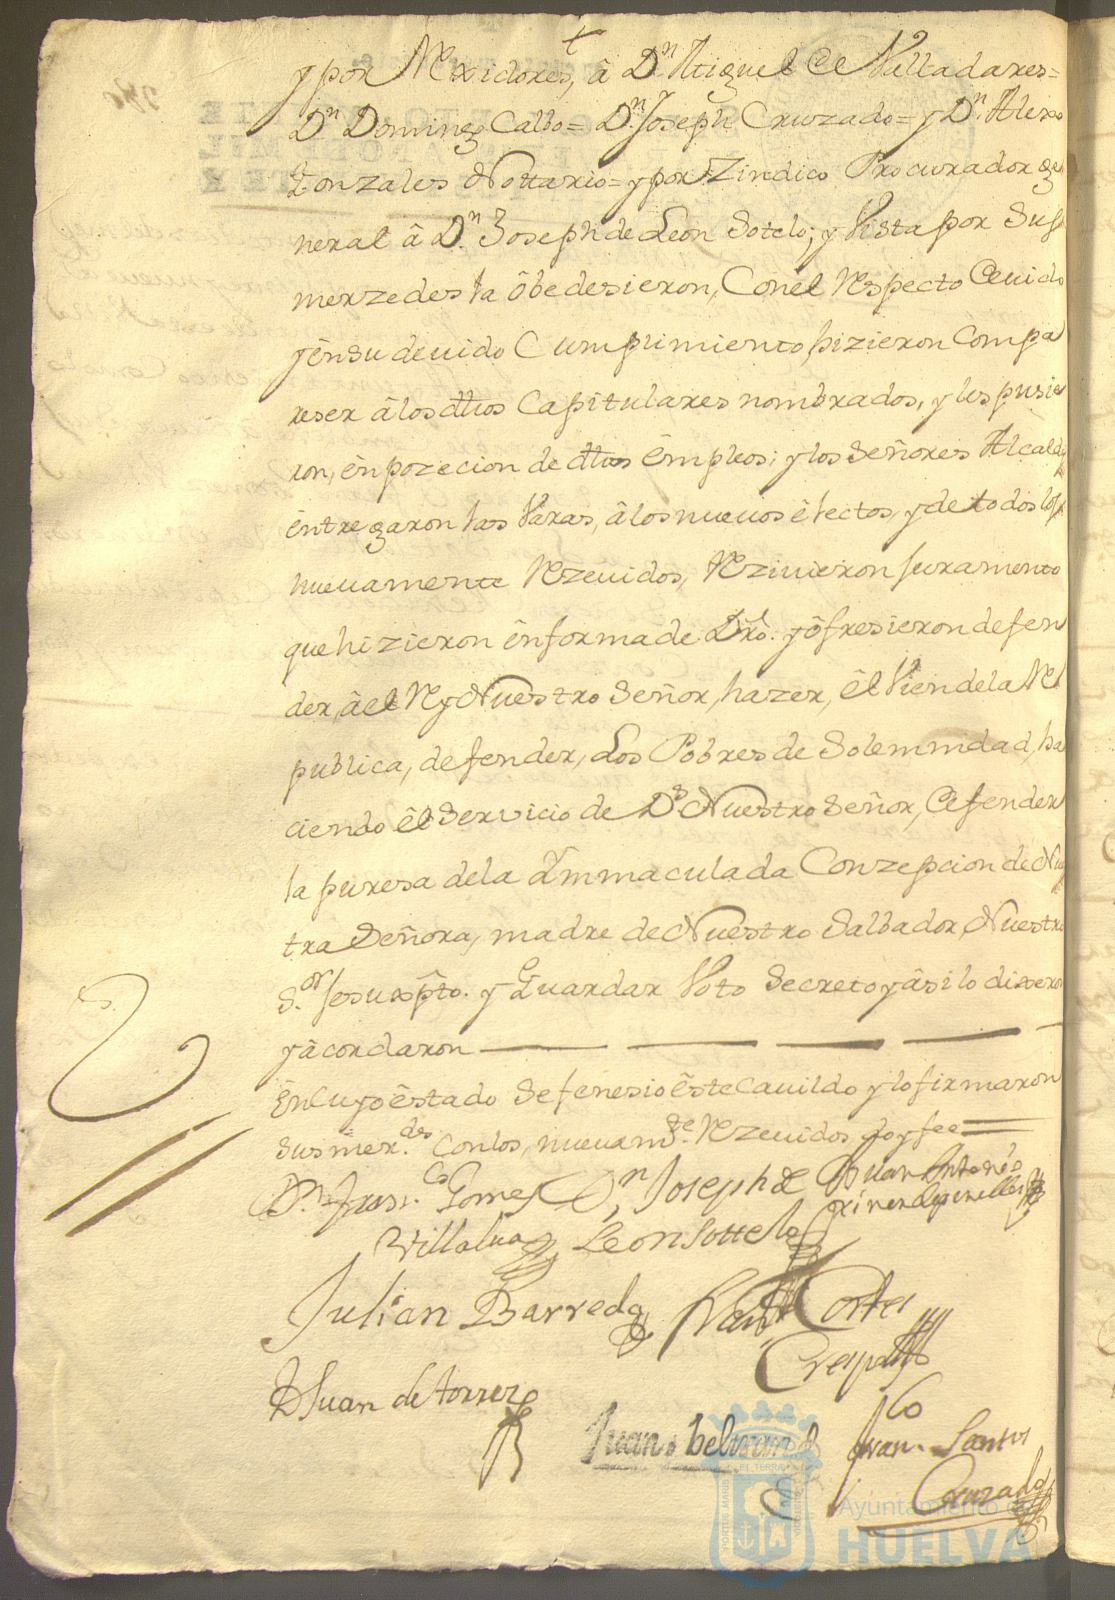 y por Rexidores, â Dn Miguel de Valladares=
Dn Domingo Calbo= Dn Joseph Cruzado= y Dn Alexo
Gonzales Nottario= y por Zindico Procurador ge
neral â Dn Joseph de Leon Sotelo; y Vista por Sus
merzedes la ôbedesieron, Con el Respecto Deuido
y ên su deuido Cumplimiento hizieron Compa
reser â los dhos Capitulares nombrados, y los pusie
ron, ên pozecion de dhos êmpleos; y los Señores Alcaldes
êntregaron las Varas, â los nueuos êlectos, y de todos los
nueuamente Rezeuidos, Reziuieron Juramento
que hizieron ên forma de Dro. y ôfresieron defen
der, â el Rey Nuestro Señor, hazer, êl Vien de la Re
publica, defender, Los Pobres de Solemnidad, ha
ciendo êl Servicio de Ds Nuestro Señor, Defender
la puresa de la Ymmaculada Conzepcion de Nues
tra Señora, madre de Nuestro Salbador, Nuestro
S.or Jesuxpto. y Guardar Voto Secreto y âsi lo dixeron
y âcordaron
Ên Cuyo êstado Se fenesio êste Cauildo y lo firmaron
Sus mer.des Con los, nueuam.te Rezeuidos, doy fee
Dn Fran.co Gomez Dn Joseph de Juan Antonio
Villalua Leon Sottelo
Julian Barreda Fran.co Cortes
Crespo
D Juan de torres
Juan Beltran Fran.co Santos
Cruzado
Ayuntamiento de
HUELVA